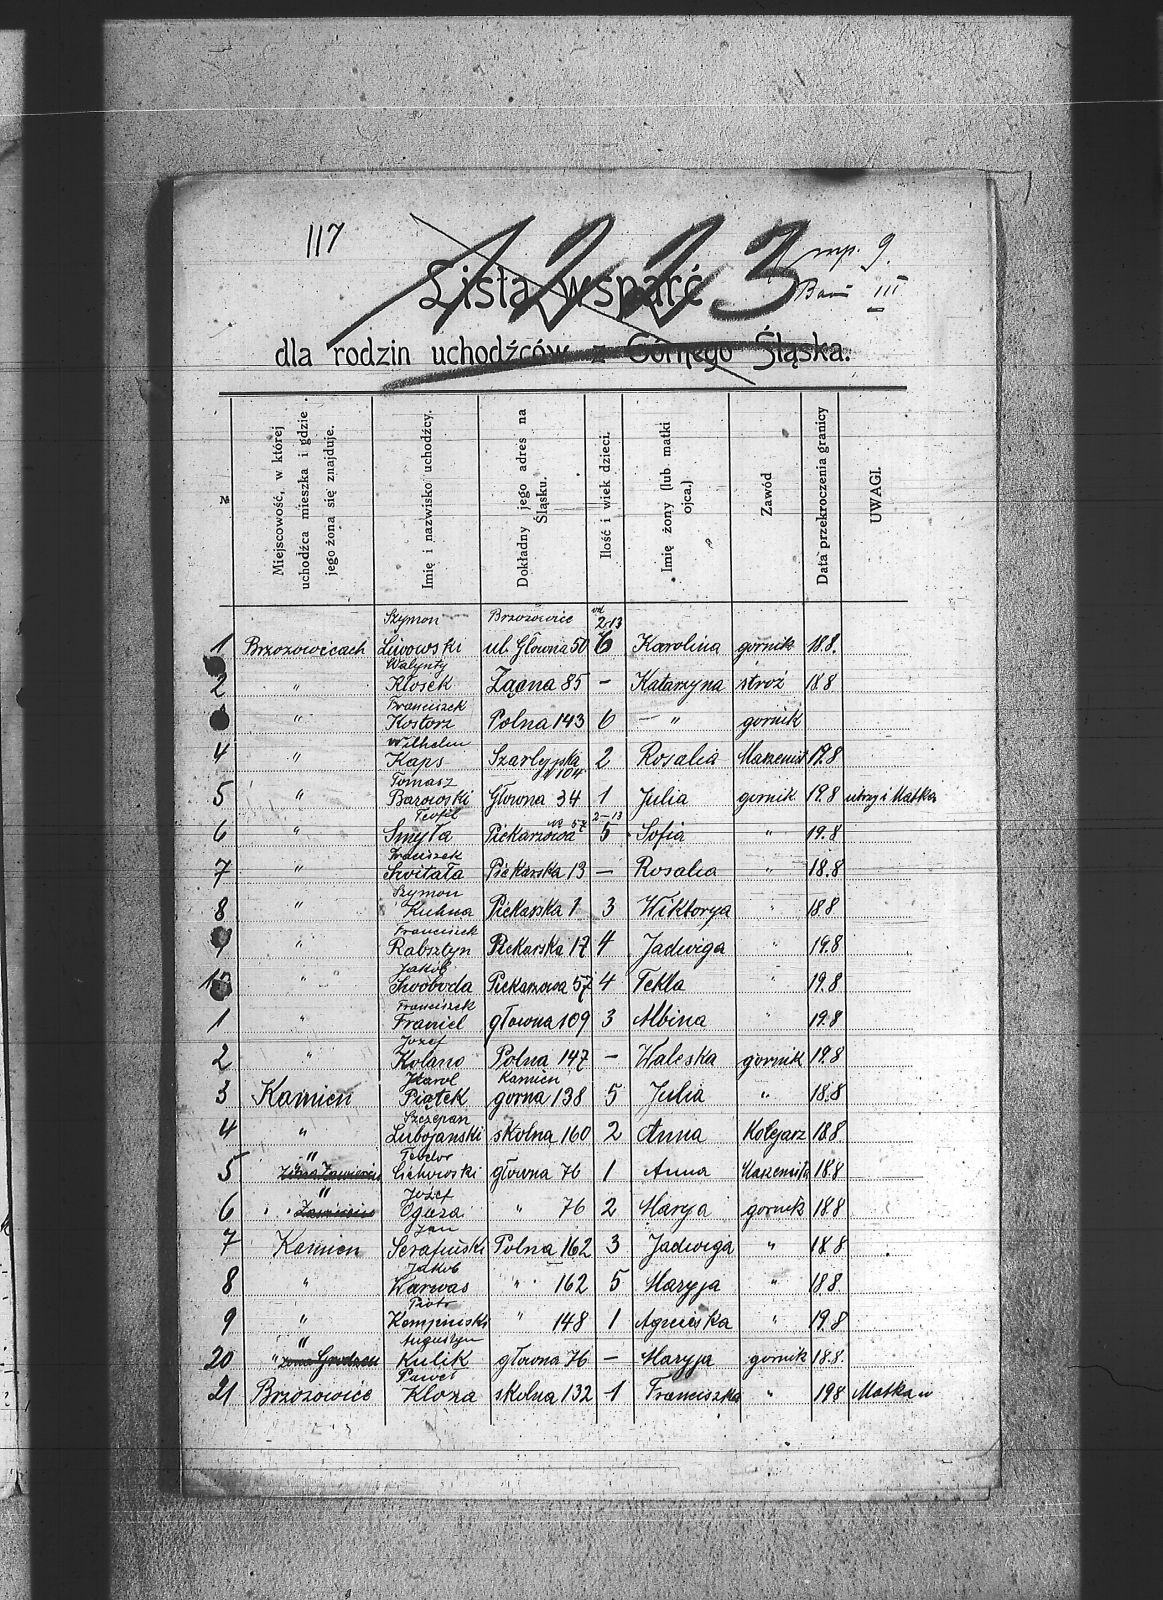 117
1223
mp. 9.
III
Lista wsparć
dla rodzin uchodźców z Górnego Śląska.
№
Miejscowość, w której uchodźca mieszka i gdzie jego żona się znajduje.
Imię i nazwisko uchodźcy.
Dokładny jego adres na Śląsku.
Ilość i wiek dzieci.
Imię żony (lub matki ojca.)
Zawód
Data przekroczenia granicy
UWAGI.
Szymon Brzozowice od 2-13
1 Brzozowicach Lwowski ul Głowna 50 6 Karolina gornik 18.8.
Walynty
2 " Kłosek Łączna 85 - Katarzyna stroż 18.8
Franciszek
" Kostorz Polna 143 6 - " gornik
Wilhelm
4 " Kaps Szarlejska 104 2 Rosalia Maszenist 19.8
Tomasz
5 " Barowski Głowna 34 1 Julia gornik 19.8 i Matka
Teofil № 57 2-13
6 " Smyła Piekarowa 5 Sofia " 19.8
Franciszek
7 " Switała Piekarska 13 - Rosalia " 18.8
Szymon
8 " Kuhna Piekarska 1 3 Wiktorya " 18.8
Franciszek
9 " Rabsztyn Piekarska 17 4 Jadwiga " 19.8
Jakob
10 " Swoboda Piekarowa 57 4 Tekla " 19.8
Franciszek
1 " Framel głowna 109 3 Albina " 19.8
Jozef
2 " Kolano Polna 147 - Waleska gornik 19.8
Karol Kamien
3 Kamien Piątek gorna 138 5 Julia " 18.8
Szczepan
4 " Lubojanski skolna 160 2 Anna Kolejarz 18.8
" Teodor
5 Cichowski głowna 76 1 Anna Maszenista 18.8
" Jozef
6 Ogaza " 76 2 Marya gornik 18.8
Jan
7 Kamien Serafinski Polna 162 3 Jadwiga " 18.8
Jakob
8 " Karwas " 162 5 Maryja " 18.8
Piotr
9 " Kempinski " 148 1 Agnieska " 19.8
" Auguszyn
20 " Kulik głowna 76 - Maryja gornik 18.8.
Paweł
21 Brzozowice Kloza skolna 132 -1 Franciszka " 19.8 Matka w